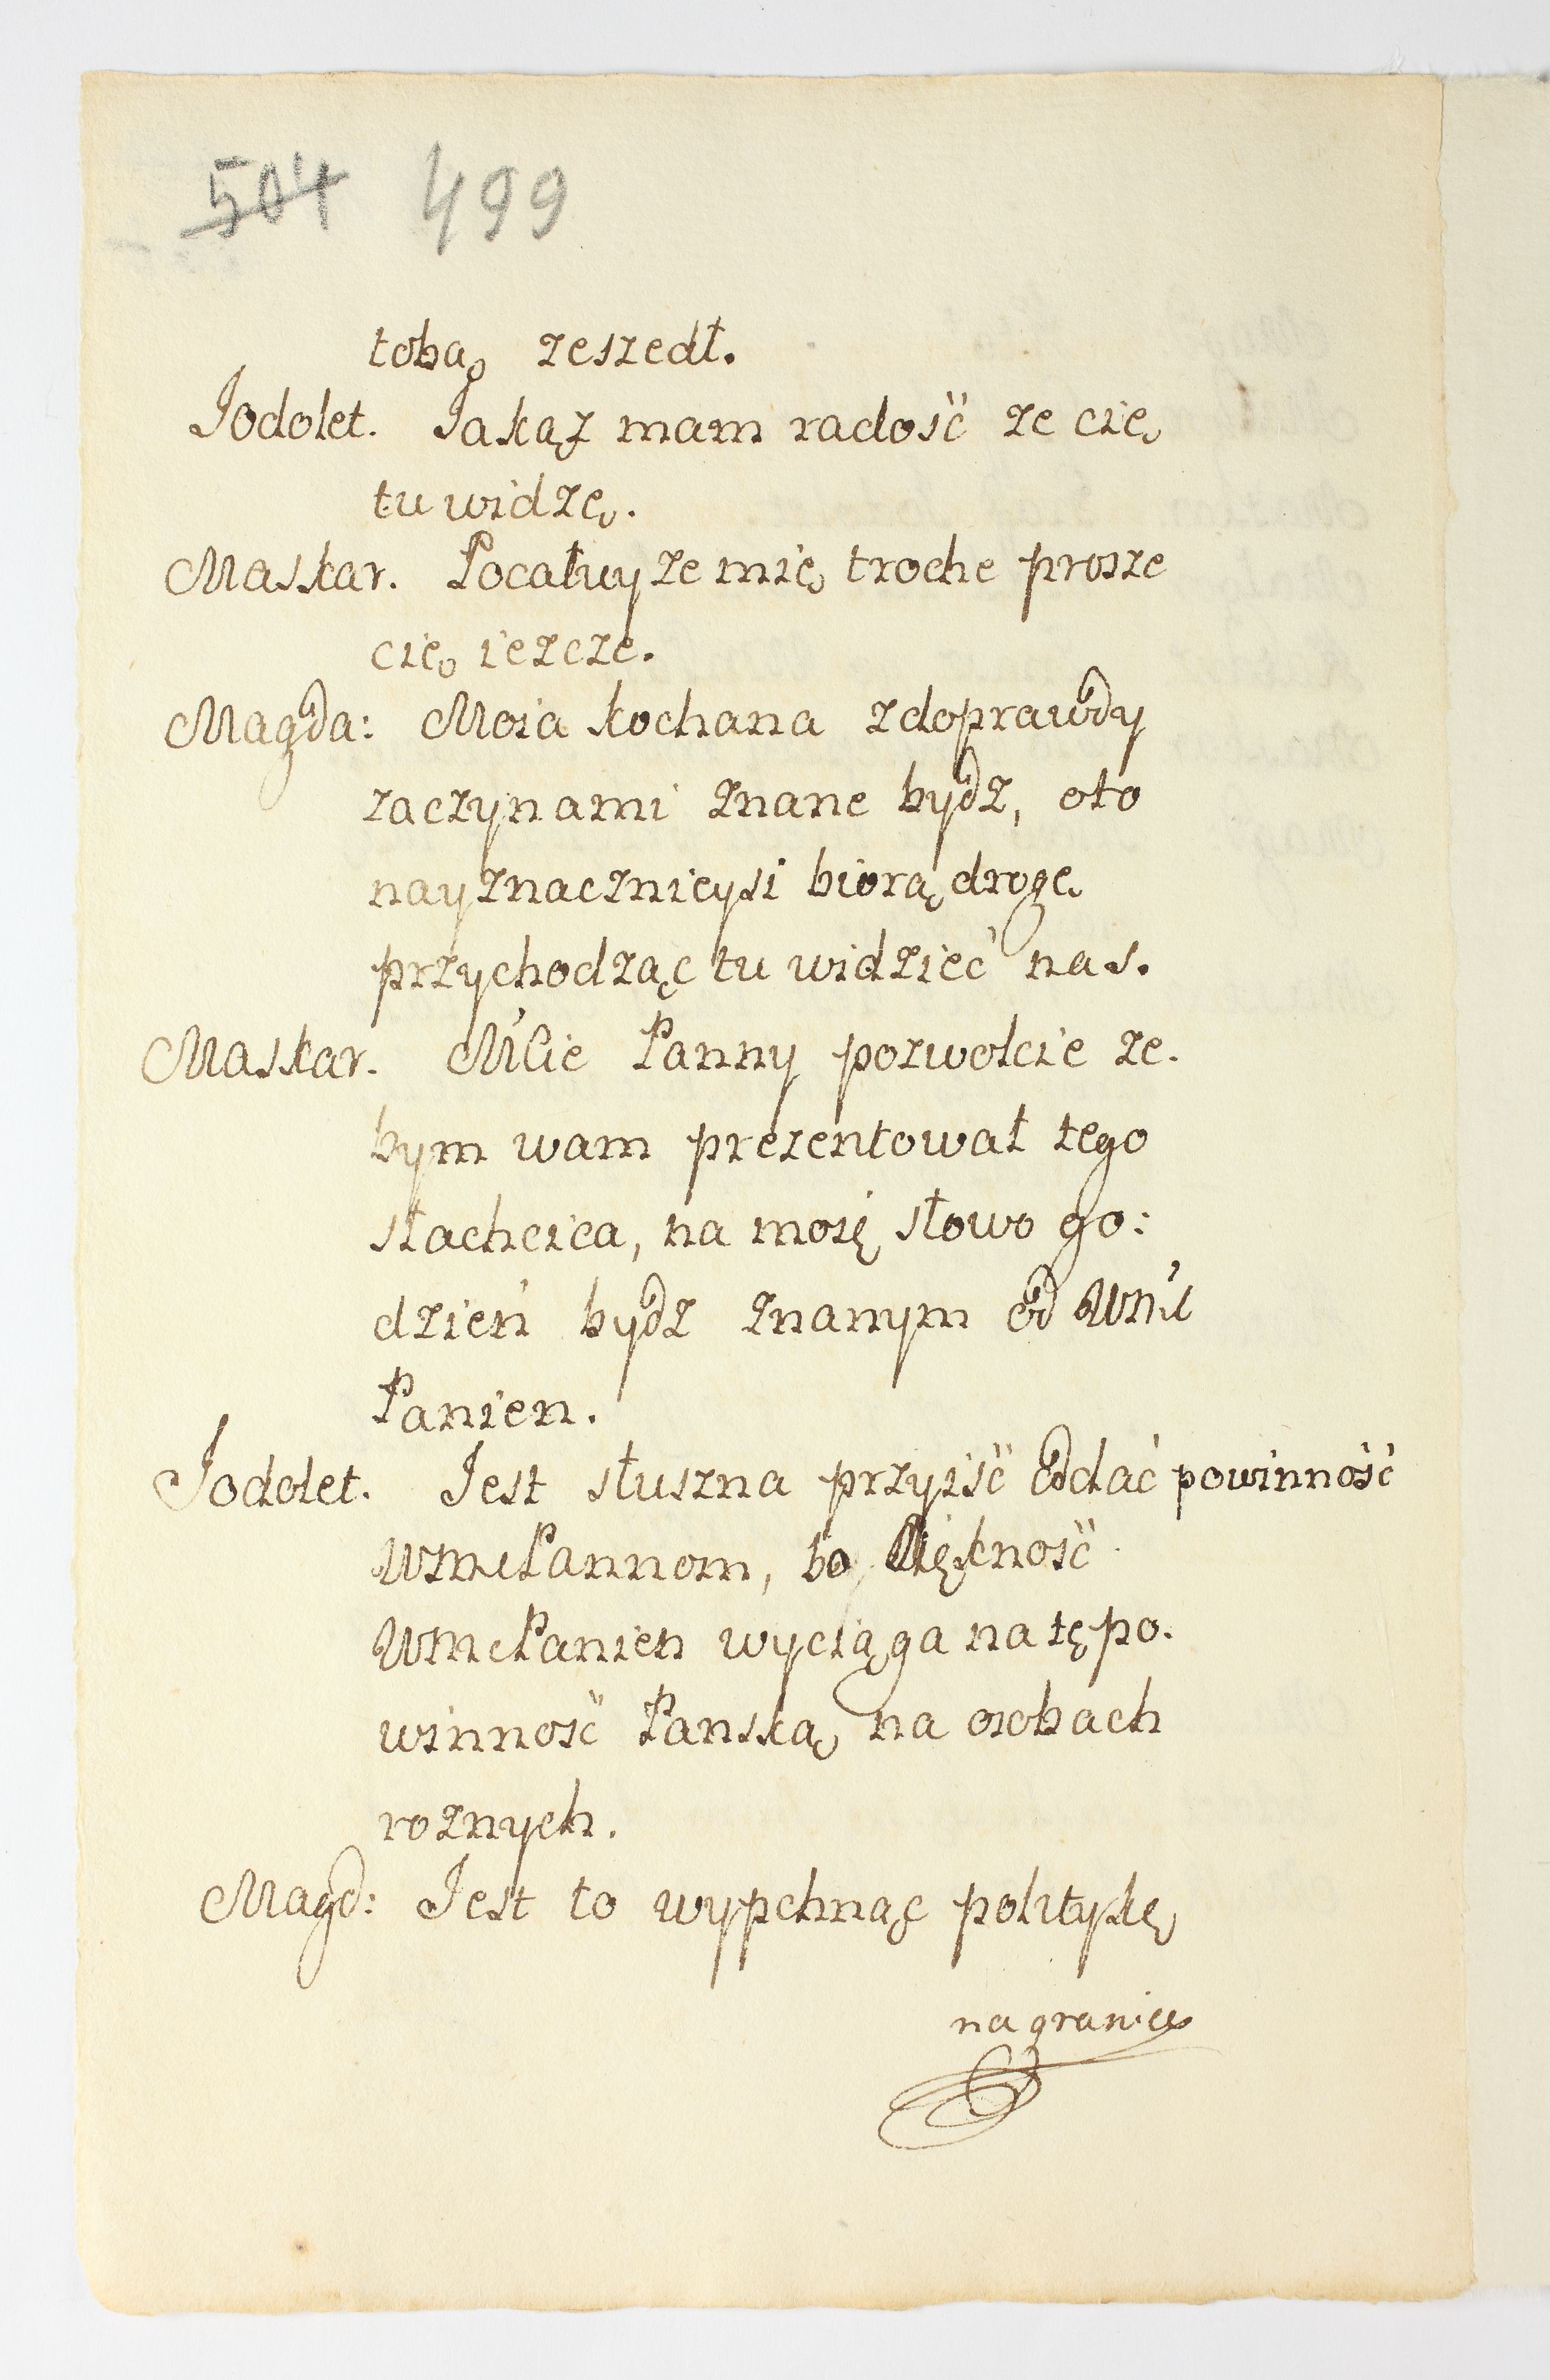 504 499
tobą zeszedł.
Jodolet. Jakąż mam radość ze cię
tu widzę.
Maskar. Pocałuy ze mię troche prosze
cię ieszcze.
Magda: Moia kochana zdoprawdy
zaczynami znane bydz, oto
nayznacznieysi biorą drogę
przychodząc tu widzieć nas.
Maskar. Mście Panny pozwolcie ze.
bym wam prezentował tego
słachcica, na moię słowo go:
dzień bydz znanym od
Panien.
Jodolet. Jest słuszna przyiść oddać powinność
WmcPannom, bo Piękność
WmcPanien wyciąga na tę po.
winność Panską na osobach
roznych.
Magd: Jest to wypchnąc politykę
na granice